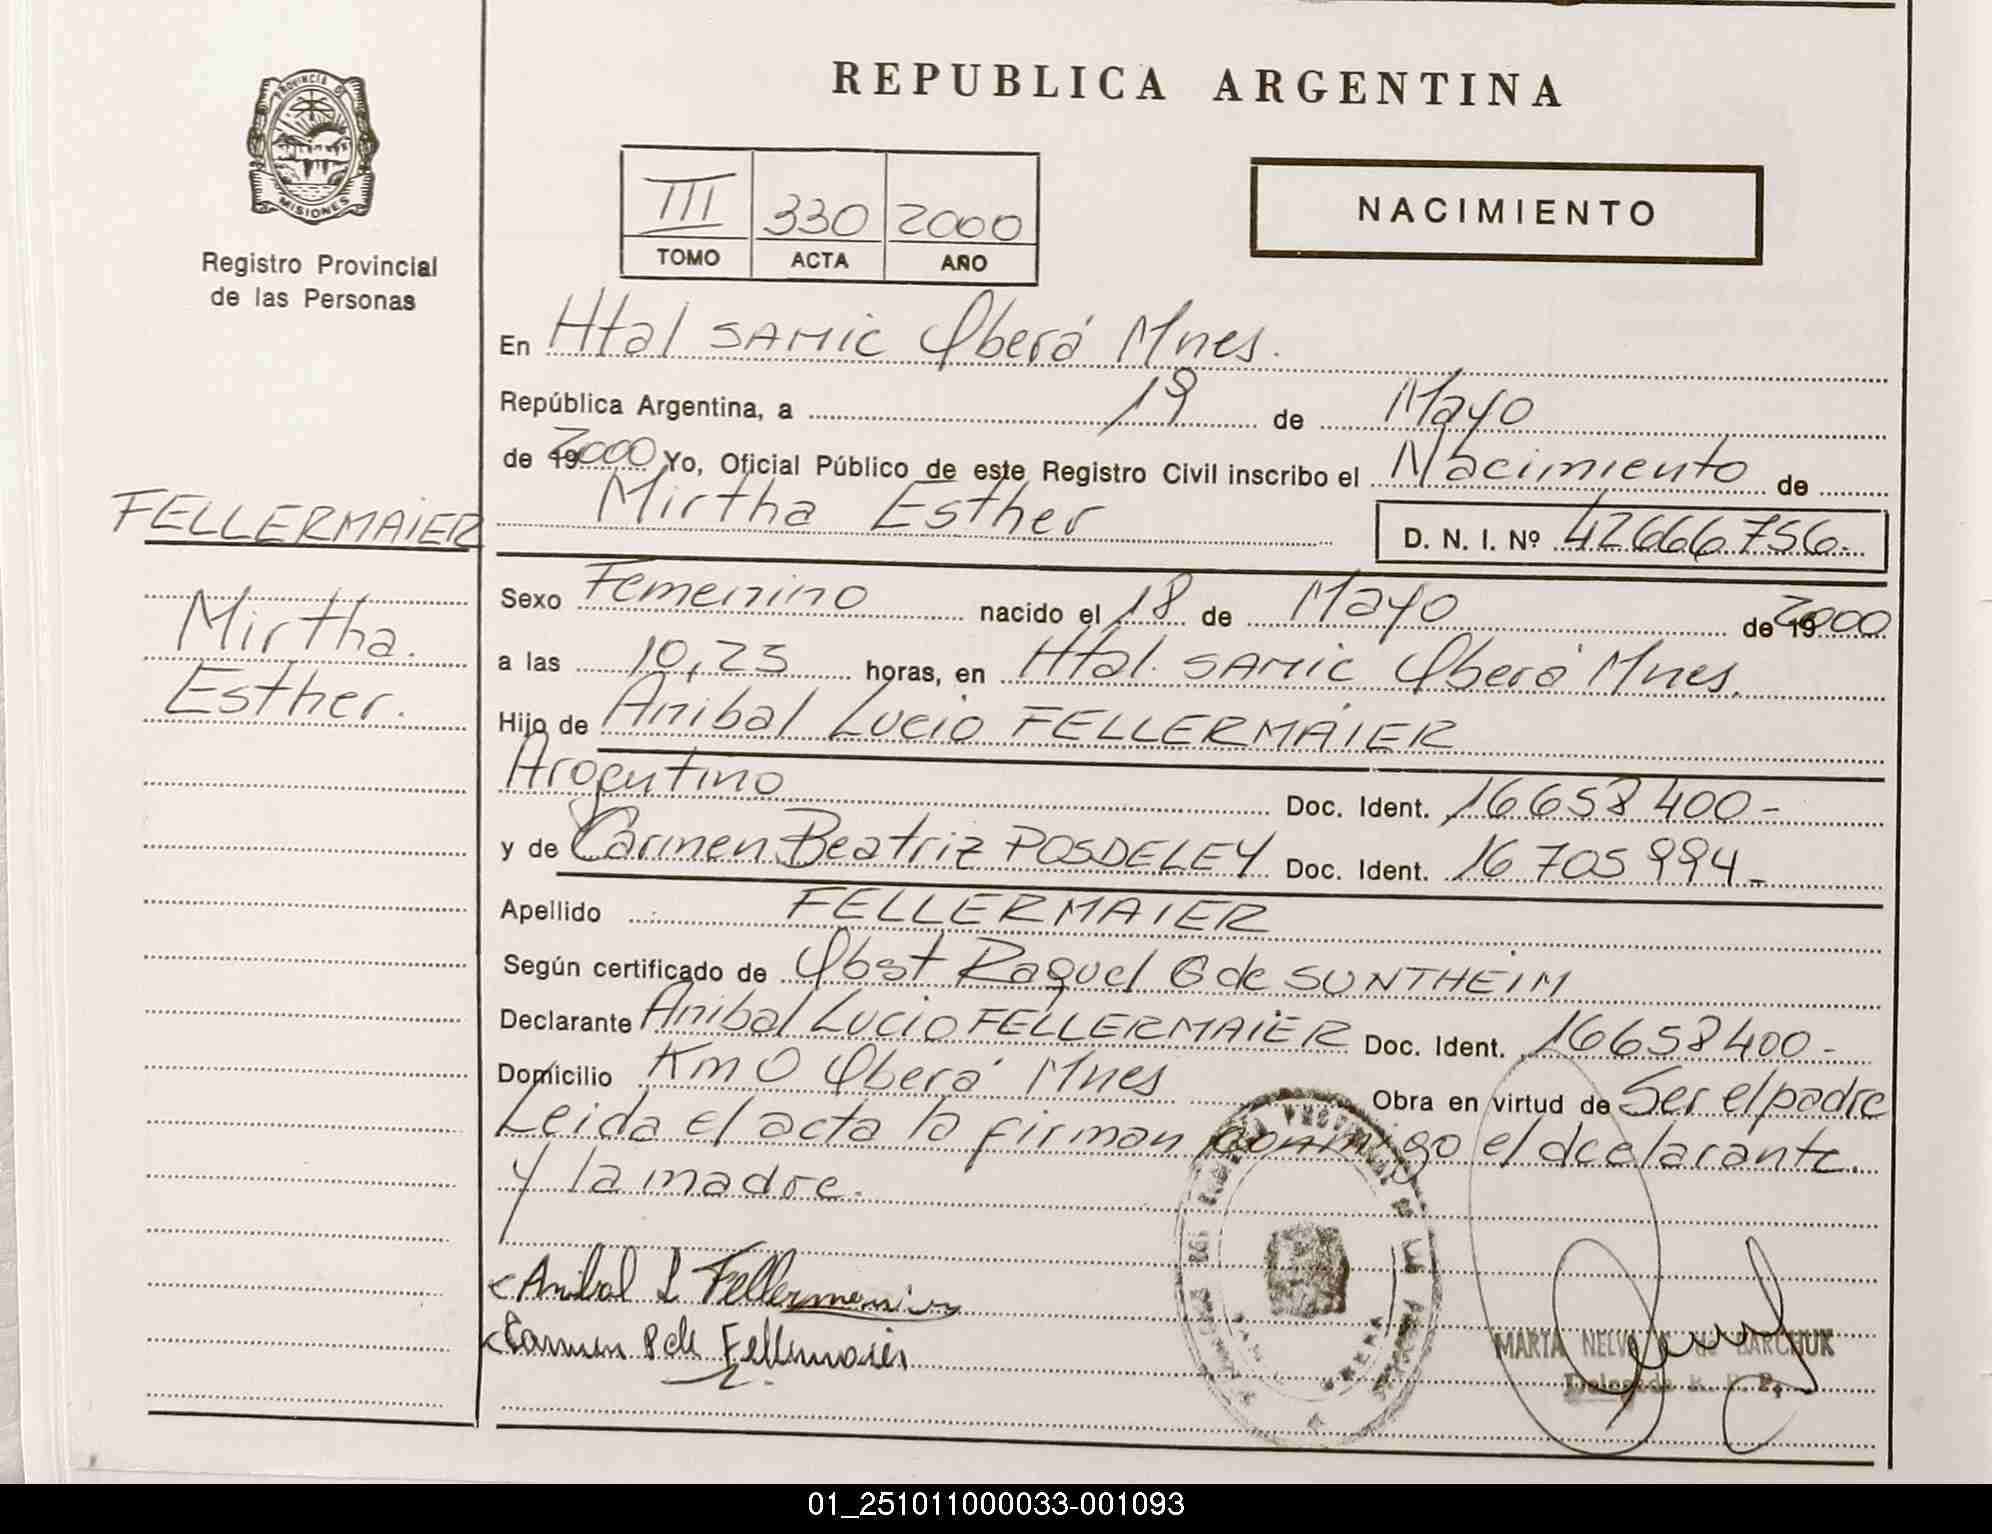 PROVINCIA DE
MISIONES
Registro Provincial
de las Personas
FELLERMAIER
Mirtha.
Esther.
REPUBLICA ARGENTINA
III 330 2000
TOMO ACTA AÑO
NACIMIENTO
En Htal SAMIC Oberá Mnes.
República Argentina, a 19 de Mayo
de 19 2000 Yo, Oficial Público de este Registro Civil inscribo el Nacimiento de
Mirtha Esther D. N. I. Nº 42666756-
Sexo Femenino nacido el 18 de Mayo de 19 2000
a las 10,25 horas, en Htal. SAMIC Oberá Mnes.
Hijo de Anibal Lucio FELLERMAIER
Argentino Doc. Ident. 16658400-
y de Carmen Beatriz POSDELEY Doc. Ident. 16705994-
Apellido FELLERMAIER
Según certificado de Obst Raquel G de SUNTHEIM
Declarante Anibal Lucio FELLERMAIER Doc. Ident. 16658400-
Domicilio Km 0 Oberá Mnes Obra en virtud de Ser el padre
Leida el acta la firman conmigo el declarante
y la madre.
Anibal L Fellermaier
Carmen P de Fellermaier
MARTA
01_251011000033-001093